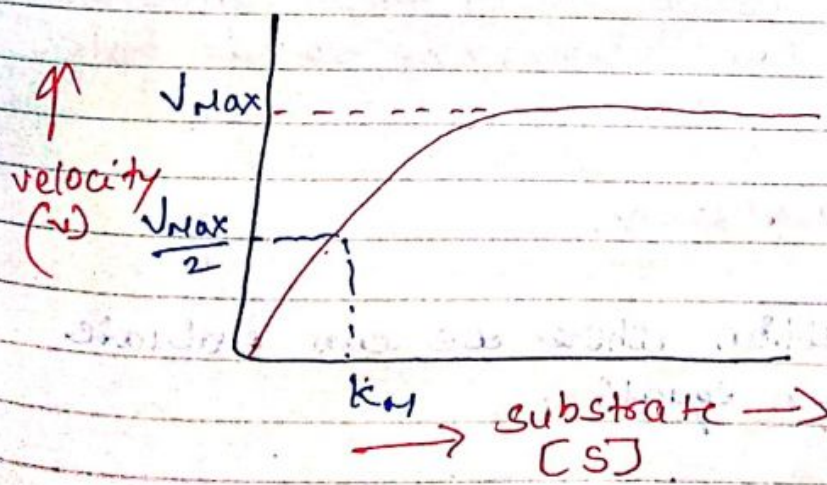 VMax
velocity
(v)
VMax
2
KM
substrate
[S]